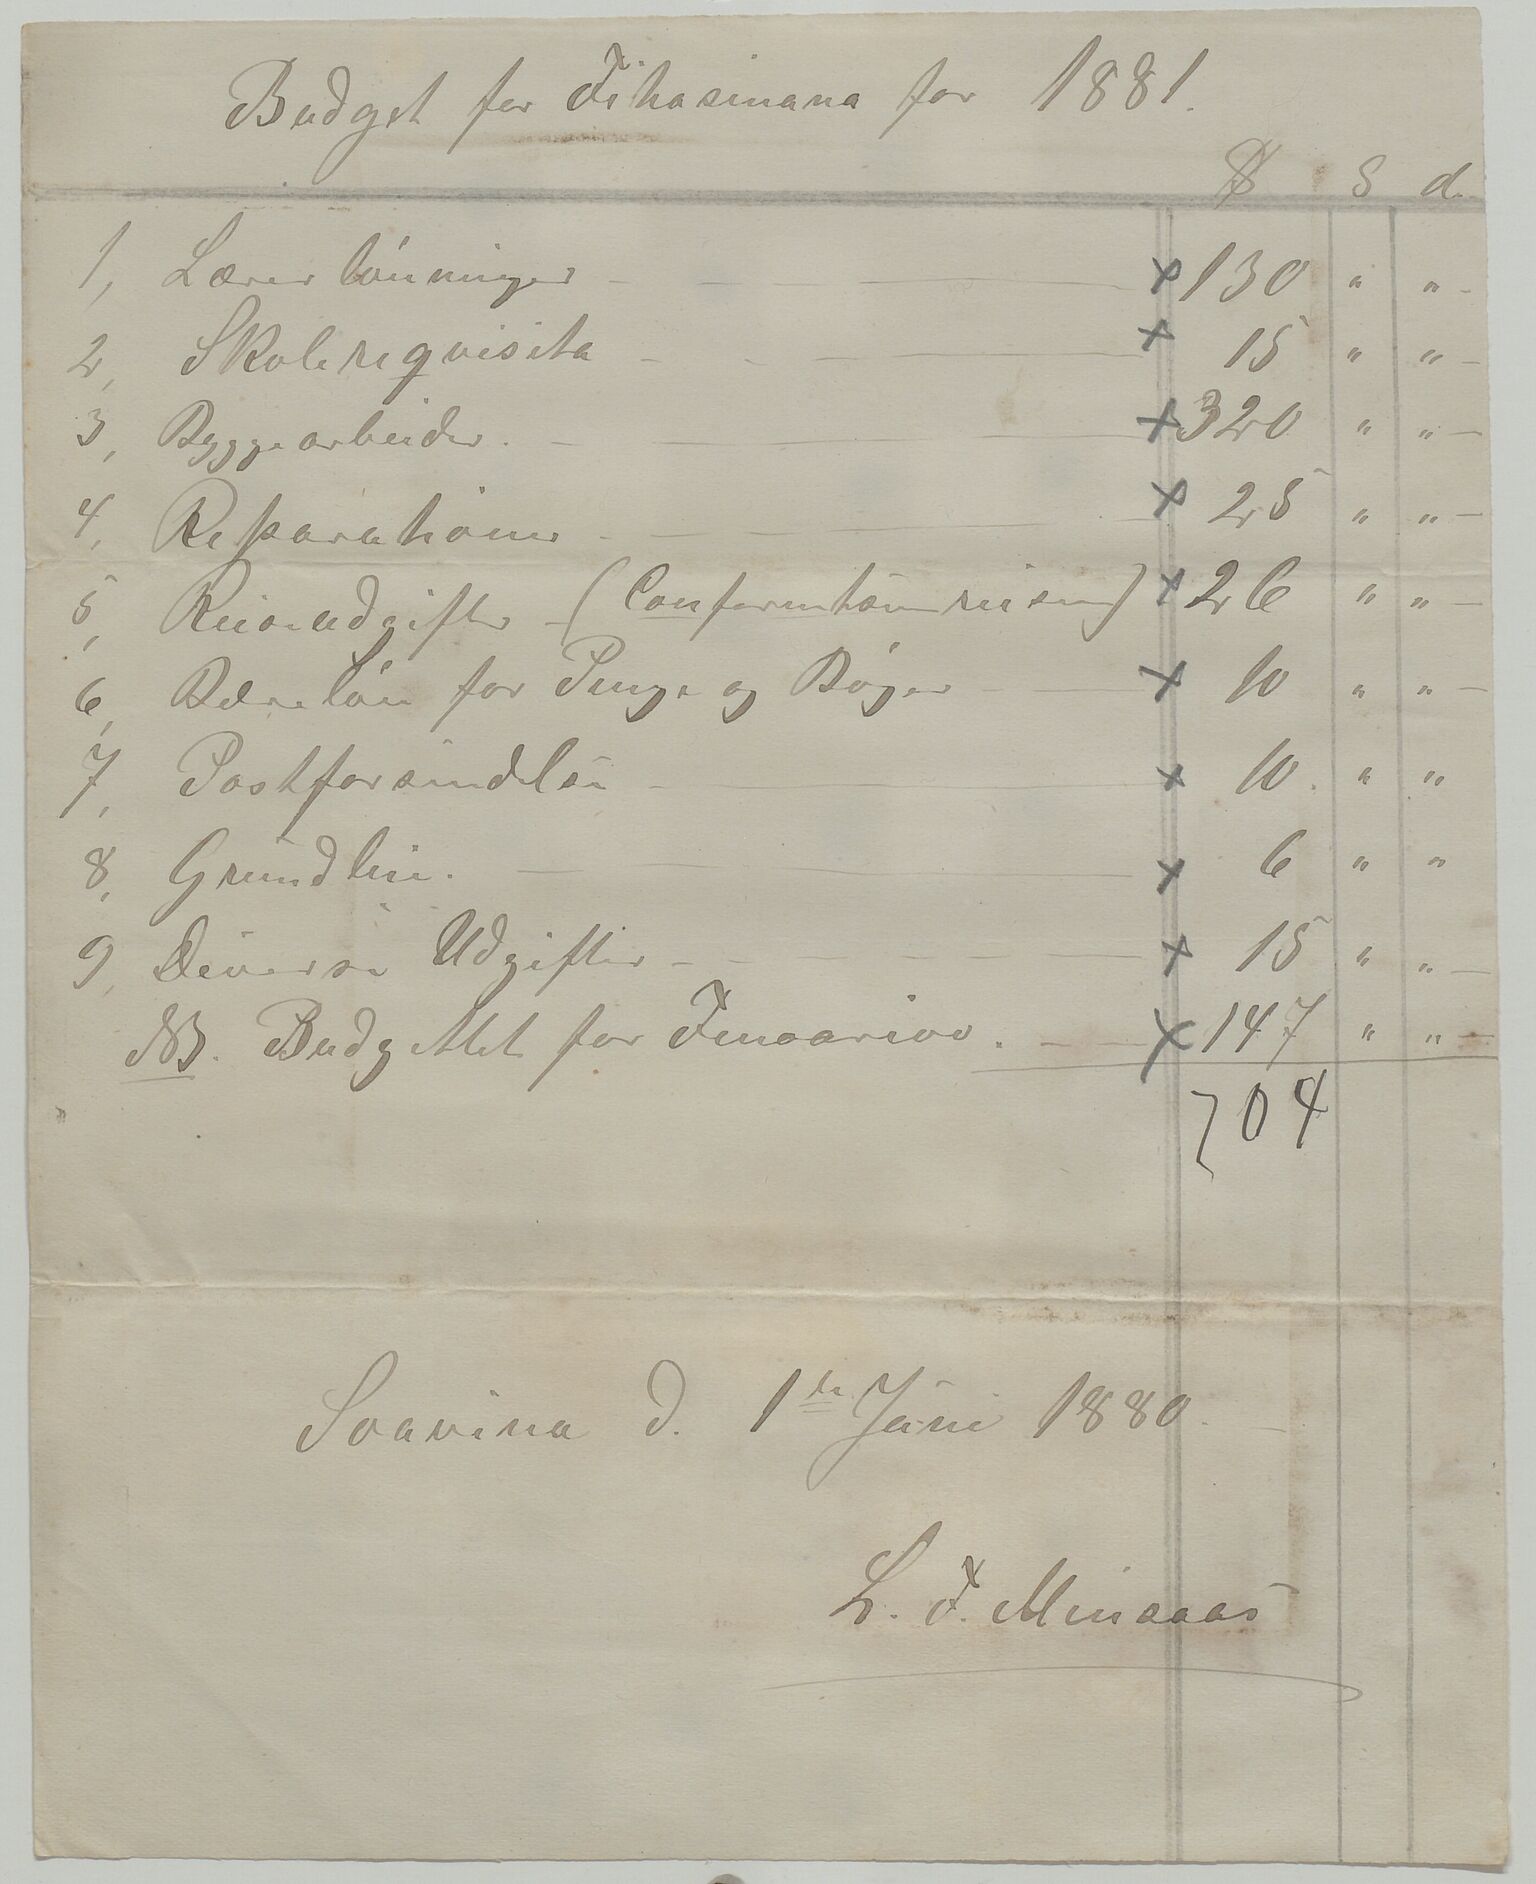 Budget for Fihasinana for 1881.
$ S d.
1, Lærerlönninger - - - × 130 " " -
2, Skolereqvisita - - - × 15 " " -
3, Byggearbeider. - - - × 320 " " -
4, Reparationer - - - × 25 " " -
5, Reiseudgifter - (Conferentsreisen) × 26 " " -
6, Bærelön for Penge og Böger - × 10 " " -
7, Postforsendelse - - × 10. " "
8, Grundleie. - - × 6 " "
9, Diverse Udgifter - - - × 15 " " -
NB. Budgettet for Fenoarivo. - - × 147 " " -
704
Soavina d. 1ste Juni 1880.
L. F. Minsaas